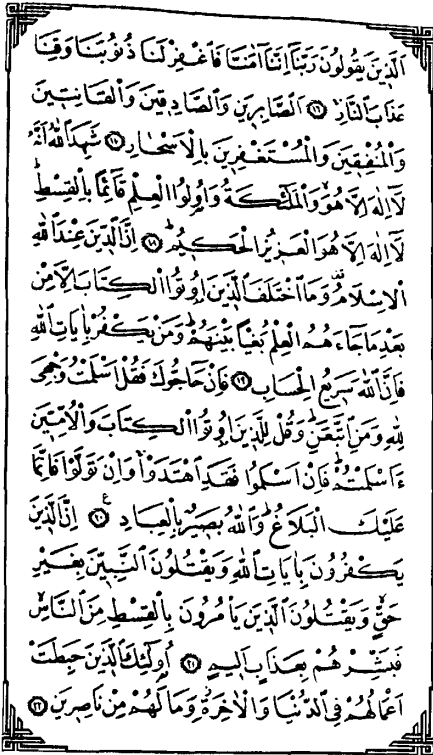 اَلَّذِينَ يَقُولُونَ رَبَّنَا اِنَّنَا اٰمَنَّا فَاغْفِرْ لَنَا ذُنُوبَنَا وَقِنَا
عَذَابَ النَّارِ ﴿١٦﴾ اَلصَّابِرِينَ وَالصَّادِقِينَ وَالْقَانِتِينَ
وَالْمُنْفِقِينَ وَالْمُسْتَغْفِرِينَ بِالْاَسْحَارِ ﴿١٧﴾ شَهِدَ اللّٰهُ اَنَّهُ
لَٓا اِلٰهَ اِلَّا هُوَ وَالْمَلٰٓئِكَةُ وَاُولُوا الْعِلْمِ قَٓائِمًا بِالْقِسْطِ
لَٓا اِلٰهَ اِلَّا هُوَ الْعَزِيزُ الْحَكِيمُ ﴿١٨﴾ اِنَّ الدِّينَ عِنْدَ اللّٰهِ
الْاِسْلَامُ وَمَا اخْتَلَفَ الَّذِينَ اُوتُوا الْكِتَابَ اِلَّا مِنْ
بَعْدِ مَا جَٓاءَهُمُ الْعِلْمُ بَغْيًا بَيْنَهُمْ وَمَنْ يَكْفُرْ بِاٰيَاتِ اللّٰهِ
فَاِنَّ اللّٰهَ سَرِيعُ الْحِسَابِ ﴿١٩﴾ فَاِنْ حَٓاجُّوكَ فَقُلْ اَسْلَمْتُ وَجْهِيَ
لِلّٰهِ وَمَنِ اتَّبَعَنِ وَقُلْ لِلَّذِينَ اُوتُوا الْكِتَابَ وَالْاُمِّيِّنَ
ءَاَسْلَمْتُمْ فَاِنْ اَسْلَمُوا فَقَدِ اهْتَدَوْا وَاِنْ تَوَلَّوْا فَاِنَّمَا
عَلَيْكَ الْبَلَاغُ وَاللّٰهُ بَصِيرٌ بِالْعِبَادِ ﴿٢٠﴾ اِنَّ الَّذِينَ
يَكْفُرُونَ بِاٰيَاتِ اللّٰهِ وَيَقْتُلُونَ النَّبِيِّنَ بِغَيْرِ
حَقٍّ وَيَقْتُلُونَ الَّذِينَ يَاْمُرُونَ بِالْقِسْطِ مِنَ النَّاسِ
فَبَشِّرْهُمْ بِعَذَابٍ اَلِيمٍ ﴿٢١﴾ اُولٰٓئِكَ الَّذِينَ حَبِطَتْ
اَعْمَالُهُمْ فِي الدُّنْيَا وَالْاٰخِرَةِ وَمَا لَهُمْ مِنْ نَاصِرِينَ ﴿٢٢﴾